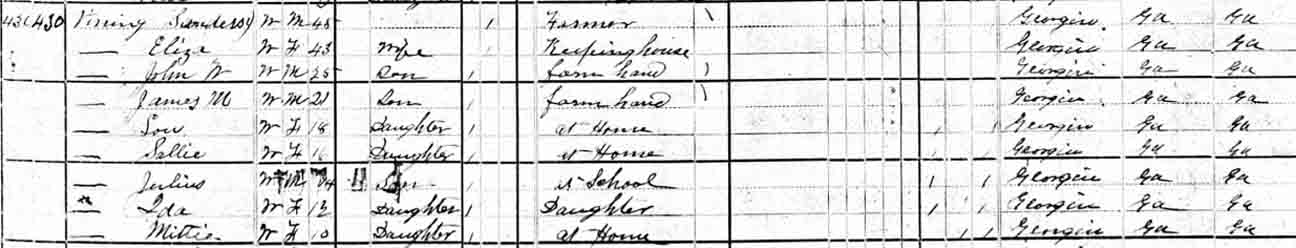 430 Vining Sanders W M 45 Farmer Georgia Ga Ga
— Eliza W F 43 Wife Keeping house Georgia Ga Ga
— John W W M 25 Son farm hand Georgia Ga Ga
— James M W M 21 Son farm hand Georgia Ga Ga
— Lou W F 18 Daughter at Home Georgia Ga Ga
— Sallie W F 16 Daughter at Home Georgia Ga Ga
— Julius W M 14 Son at School Georgia Ga Ga
— Ida W F 12 Daughter Daughter Georgia Ga Ga
— Mittie W F 10 Daughter at Home Georgia Ga Ga